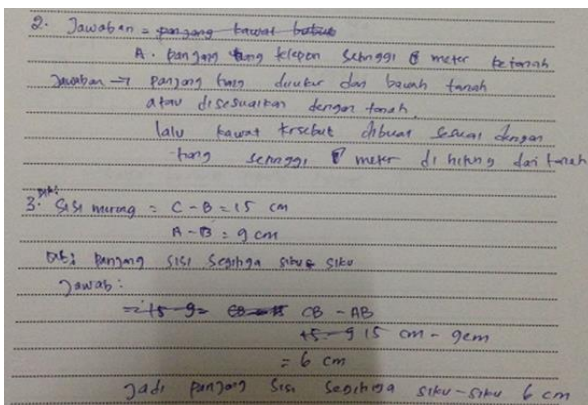 2. Jawaban = panjang kawat
A. panjang tiang telepon setinggi 8 meter ke tanah
Jawaban → panjang tiang diukur dari bawah tanah
atau disesuaikan dengan tanah.
lalu kawat tersebut dibuat sesuai dengan
tiang setinggi 8 meter di hitung dari tanah
3. Dik: Sisi miring = C - B = 15 cm
A - B = 9 cm
Dit: panjang sisi segitiga siku siku
Jawab:
= 15 - 9 = CB - AB
15 - 9 15 cm - 9 cm
= 6 cm
Jadi panjang sisi segitiga siku-siku 6 cm